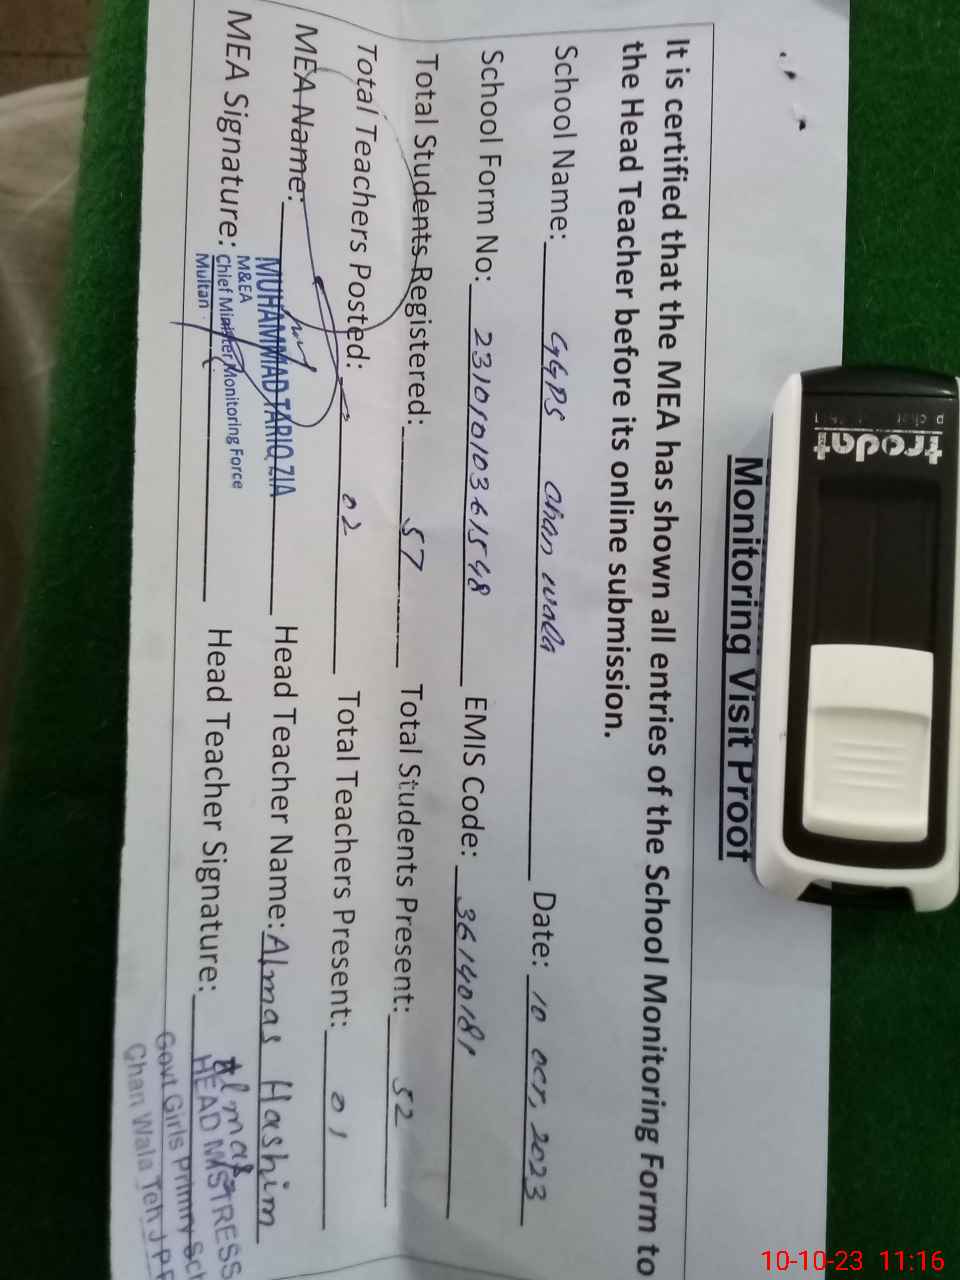 trodat
Monitoring Visit Proof
It is certified that the MEA has shown all entries of the School Monitoring Form to
the Head Teacher before its online submission.
School Name: GGPS Chan wala Date: 10 oct, 2023
School Form No: 23101010361548 EMIS Code: 36140181
Total Students Registered: 57 Total Students Present: 52
Total Teachers Posted: 02 Total Teachers Present: 01
MEA Name: MUHAMMAD TARIQ ZIA Head Teacher Name: Almas Hashim
MEA Signature: Head Teacher Signature: Almas
M&EA
Chief Minister Monitoring Force
Multan
HEAD MISTRESS
Govt Girls Primry Sch
Chan Wala Teh J P P
10-10-23 11:16